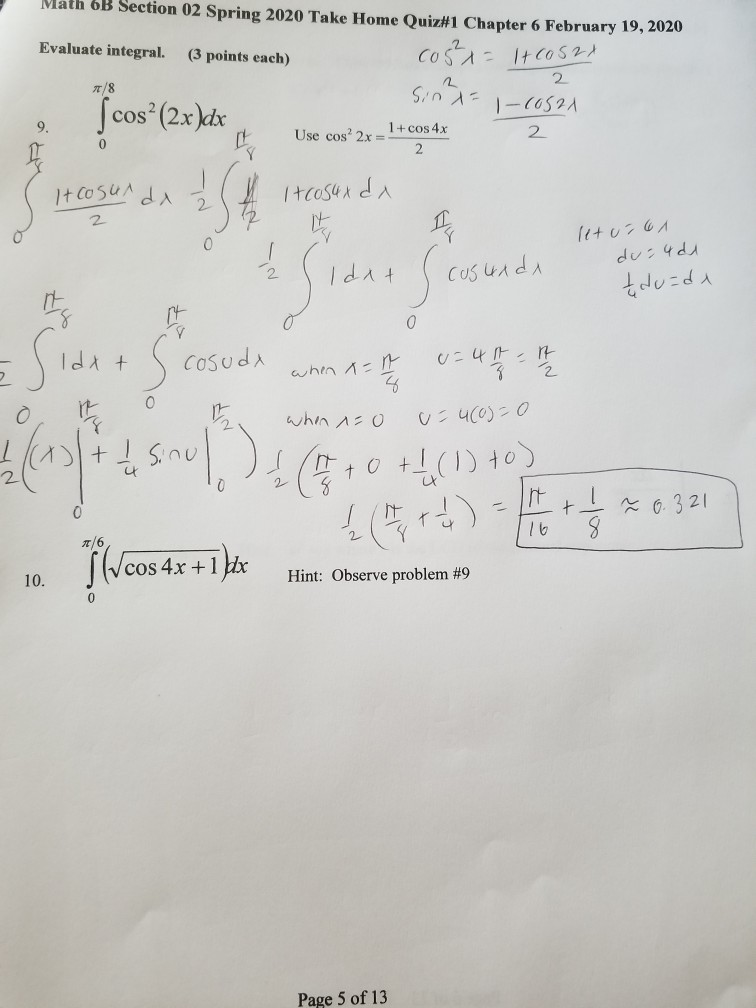 Math 6B Section 02 Spring 2020 Take Home Quiz#1 Chapter 6 February 19, 2020
Evaluate integral. (3 points each)
cos²x = 1+cos2x / 2
sin²x = 1-cos2x / 2
9. ∫₀^(π/8) cos²(2x)dx Use cos² 2x = 1+cos 4x / 2
∫₀^(π/8) 1+cos4x / 2 dx 1/2 ∫₀^(π/8) 1+cos4x dx
1/2 ∫₀^(π/8) 1dx + ∫₀^(π/8) cos4xdx
let u = 4x
du = 4dx
1/4 du = dx
1/2 ∫₀^(π/8) 1dx + ∫₀^(π/8) cosudx when x = π/8 u = 4 π/8 = π/2
when x = 0 u = 4(0) = 0
1/2 ((x)|₀^(π/8) + 1/4 sinu|₀^(π/2)) 1/2 (π/8 + 0 + 1/4(1) + 0)
1/2 (π/8 + 1/4) = π/16 + 1/8 ≈ 0.321
10. ∫₀^(π/6) (√cos 4x + 1)dx Hint: Observe problem #9
Page 5 of 13